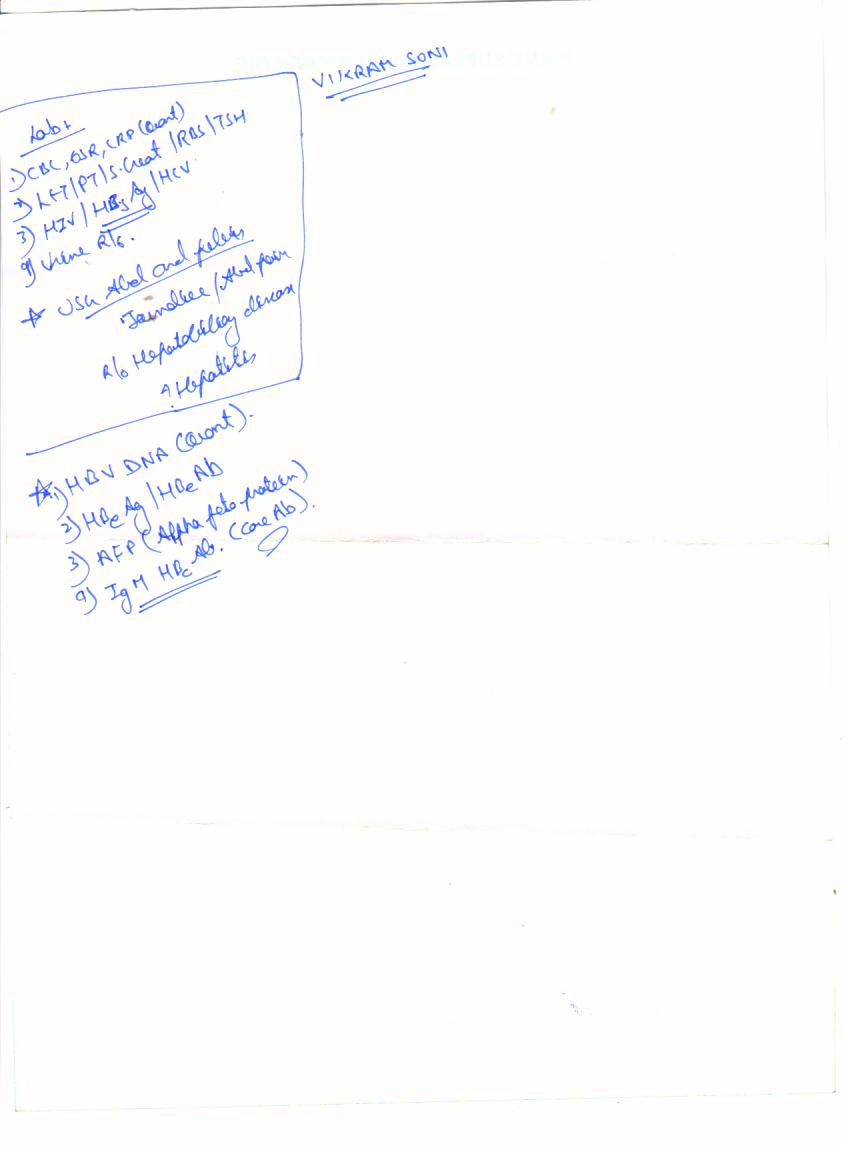 VIKRAM SONI
Lab+
1) CBC, ESR, CRP (Quant)
2) LFT/PT/S.Creat/RBS/TSH
3) HIV/HBsAg/HCV.
4) Urine R/E.
☆ USG Abd and pelvis
Jaundice/Abd pain
R/o Hepatobiliary disease
? Hepatitis
☆ 1) HBV DNA (Quant).
2) HBeAg/HBeAb
3) AFP (Alpha feto protein)
4) IgM HBcAb. (Core Ab).